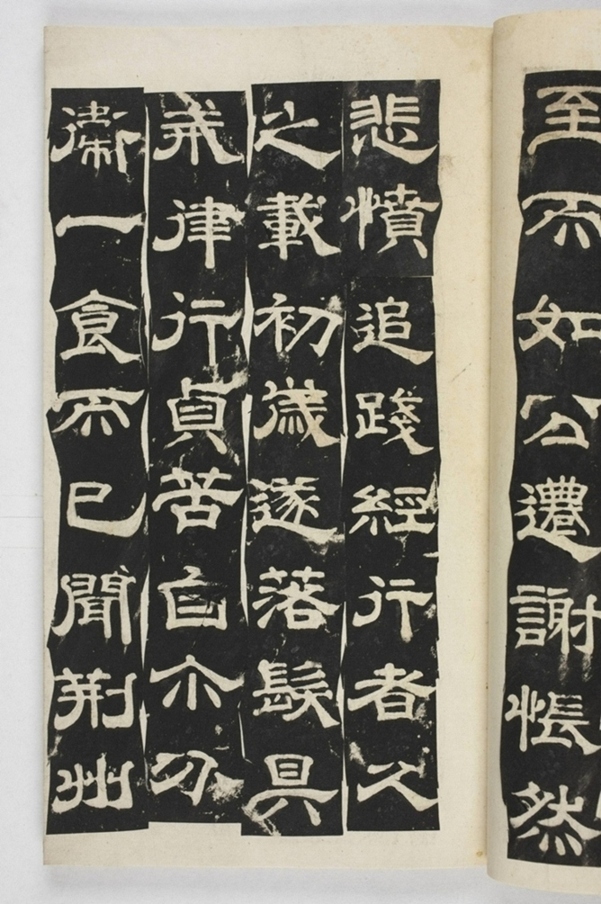 至而如公遷謝悵然
悲憤追踐經行者久
之載初歲遂落髮具
戒律行貞苦自尒分
衞一食而已聞荊州